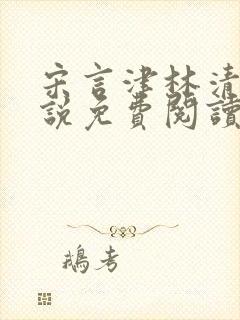 宋言津林清
說免費閱讀
鵝考